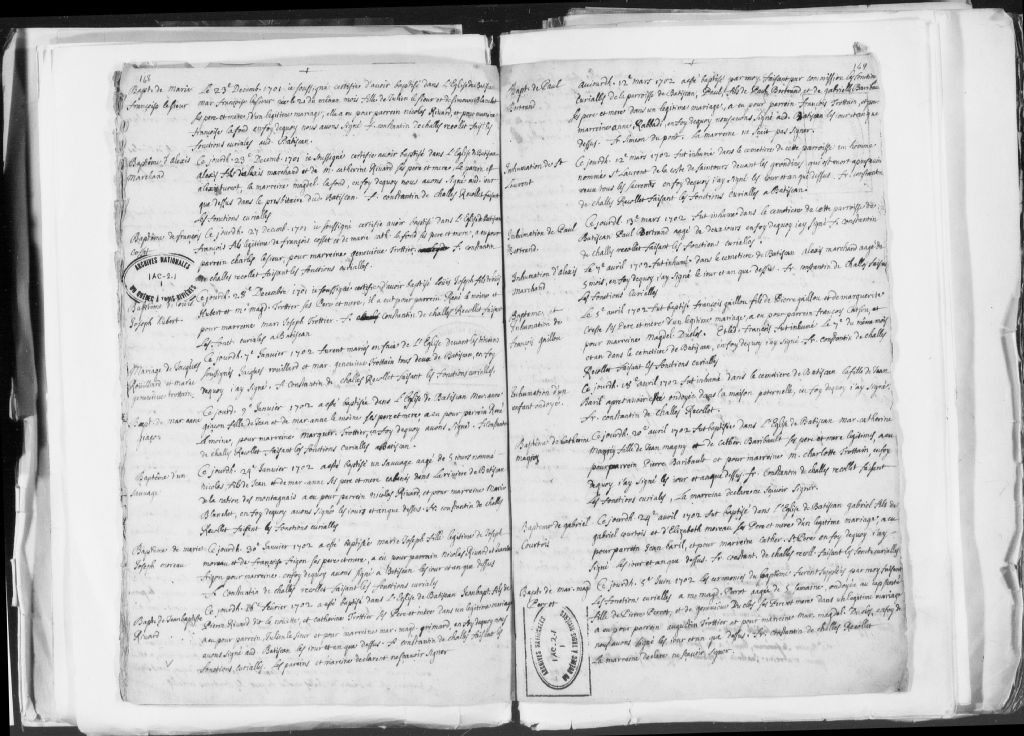 168
Bapt. de Marie
françoise lesieur
Le 23e Decemb. 1701 ie soussigné certifie d'avoir baptisé dans l'Eglise de Batiscan
mar. françoise lesieur née le 20 du même mois fille de Julien le sieur et de simonne Blanchet
ses pere et mere d'un legitime mariage, elle a eu pour parein nicolas Rivard, et pour mareine
françoise lafond enfoy dequoy nous avons signé fr. constantin de challes recollet faist les
fonctions curiales aud. Batiscan.
Baptême d'Alexis
Marchand
Ce jourdh. 23e Decemb. 1701 ie soussigné certifie avoir baptisé dans l'Eglise de Batiscan
alexis fils d'alexis marchand et de m. catherine Rivard ses pere et mere, le parein est
la marreine magdel. lafond, enfoy dequoy nous avons signé aud. iour
que dessus dans le presbitaire dud. Batiscan. fr. constantin de challes Recollet faisant
les fonctions curialles
Baptême de françois
Ce jourdh. 27 Decemb. 1701 ie soussigné certifie avoir baptisé dans l'Eglise de Batiscan
françois fils legitime de françois cosset et de mar. cath. le fond ses pere et mere, a eu pour
parrein charles lesieur, pour marreine genevieve Trottier, fr. constantin
de challes recollet faisant les fonctions curialles.
ARCHIVES NATIONALES
1AC-2.1
1
DU QUÉBEC À TROIS-RIVIÈRES
Baptême de louis
Joseph hubert
Ce jourdh. 28e Decembre 1701 ie soussigné certifie avoir baptisé louis Joseph fils
Hubert et m. magd. Trottier ses Pere et mere, il a eu pour parrein René le moine et
pour marreine mar. Joseph Trottier. fr. Constantin de challes Recollet faisant
les fonct. curiales a Batiscan.
Mariage de Jacques
Rouillard et marie
genevieve trottain.
Ce jourdh. 7e Janvier 1702 furent mariés en face de l'Eglise de Batiscan
soussignés Jacques rouillard et mar. genevieve Trottain tous deux de Batiscan, en foy
dequoy i'ay signé fr. Constantin de challes Recollet faisant les fonctions curialles.
Bapt. de mar. anne
Ce jourdh. 9e Janvier 1702 a esté baptisée dans l'Eglise de Batiscan Mar. anne
fille de Jean et de mar. anne le moine ses pere et mere a eu pour parein René
le moine, pour marreine marguer. Trottier, en foy dequoy avons signé. fr. constantin
de challes Recollet faisant les fonctions curialles a Batiscan.
Baptême d'un
Sauvage
Ce jourdh. 24e Janvier 1702 a esté baptisé un Sauvage aagé de 5 iours nommé
Nicolas fils de Jean et de mar. anne ses pere et mere cabanés dans la riviere de Batiscan
de la nation des montagnais a eu pour parrein nicolas Rivard, et pour marreine Marie
Blanchet, en foy dequoy avons signés les iours et an que dessus. fr. constantin de challes
Recollet faisant les fonctions curialles
Baptême de marie
Joseph moreau
Ce jourdh. 30e Janvier 1702 a esté baptisée marie Joseph fille legitime de Joseph
moreau et de françoise Aizon ses pere et mere, a eu pour parrein Nicolas Rivard et
Aizon pour marreine. enfoy dequoy avons signé a Batiscan les iour et an que dessus
fr. Constantin de challes recollet faisant les fonctions curiales
Bapt. de Jean baptiste
Rivard
Ce jourdh. 28e fevrier 1702 a esté baptisé dans l'Eglise de Batiscan Jean bapt. fils de
Pierre Rivard dit la nouette, et catherine Trottier ses Pere et mere dans un legitime mariage
a eu pour parrein Julien le sieur et pour marreine mar. magd. en foy dequoy nous
avons signé aud. Batiscan les iour et an que dessus. fr. constantin de challes faisant les
fonctions curialles. les parein et mareine declarent ne scavoir signer
169
Bapt. de Paul
Bertrand
aujourdh. 12e mars 1702 a esté baptisé par moy, faisant par commission les fonctions
curialles de la parroisse de Batiscan, Paul fils de Paul Bertrand et de gabrielle Baribau
ses pere et mere dans un legitime mariage, a eu pour parein françois Trottain, et pour
marreine anne, enfoy dequoy nous avons signé aud. Batiscan les iour et an que
dessus. fr. Simeon du pont. la marreine ne scait pas signer.
Inhumation de St
Laurent
Ce jourdh. 12e mars 1702 fut inhumé dans le cemetiere de cette parroisse un homme
nommé St Laurent de la coste de saintours devant les grondines qui est mort apres avoir
receu tous les sacrements enfoy dequoy i'ay signé les iour et an que dessus. fr. Constantin
de challes Recollet faisant les fonctions curialles a Batiscan.
Inhumation de Paul
Bertrand.
Ce jourdh. 13e mars 1702 fut inhumé dans le cemetiere de cette parroisse de
Batiscan Paul Bertrand aagé de deux iours enfoy dequoy i'ay signé fr. constantin
de challes recollet faisant les fonctions curialles.
Inhumation d'alexis
Marchand
Le 7e avril 1702 fut inhumé dans le cemetiere de Batiscan alexis marchand aagé de
5 mois, enfoy dequoy i'ay signé le iour et an que dessus. fr. constantin de challes faisant
les fonctions curialles
Baptême, et
Inhumation de
françois gaillou
Le 5e avril 1702 fut baptisé françois gaillou fils de Pierre gaillou et de marguerite
ses Pere et mere d'un legitime mariage, a eu pour parrein françois
et pour marreine Magdel. Duclos. Ledit françois fut inhumé le 7e du même mois
et an dans le cemetiere de Batiscan, enfoy dequoy i'ay signé fr. constantin de challes
Recollet faisant les fonctions curialles
Inhumation d'un
enfant ondoyé.
Ce jourdh. 18e avril 1702 fut inhumé dans le cemetiere de Batiscan la fille de Jean
Baril apres avoir été ondoyée dans la maison paternelle, en foy dequoy i'ay signé.
fr. constantin de challes Recollet.
Baptême de Catherine
magny
Ce jourdh. 20e avril 1702 fut baptisée dans l'Eglise de Batiscan mar. catherine
Magny fille de Jean magny et de Cather. Baribault ses pere et mere legitimes, a eu
pour parrein Pierre Baribault et pour marreine m. charlotte Trottain, en foy
dequoy i'ay signé les iour et an que dessus fr. Constantin de challes recollet faisant
les fonctions curiales, la marreine declare ne sçavoir signer.
Baptême de gabriel
Courtois
Ce jourdh. 24e avril 1702 fut baptisé dans l'Eglise de Batiscan gabriel fils de
gabriel courtois et d'Elizabeth moreau ses Pere et mere d'un legitime mariage, a eu
pour parrein Jean baril, et pour marreine cather. enfoy dequoy i'ay
signé les iour et an que dessus. fr. constant. de challes recoll. faisant les fonct. curialles
Bapt. de mar. magd
Perot
Ce jourdh. 5e Juin 1702 les ceremonies du baptême furent supplées par moy faisant
les fonctions curiales a me magd. Perot aagée de 5 semaines ondoyée au
fille de Pierre Perot, et de genevieve Duclos ses Pere et mere dans un legitime mariage
a eu pour parein augustin Trottier et pour marreine Mar. magdel. Duclos, en foy de
nous avons signé les iour et an que dessus. fr. Constantin de challes Recollet
la marreine declare ne sçavoir signer.
ARCHIVES NATIONALES
1AC-2.1
1
DU QUÉBEC À TROIS-RIVIÈRES